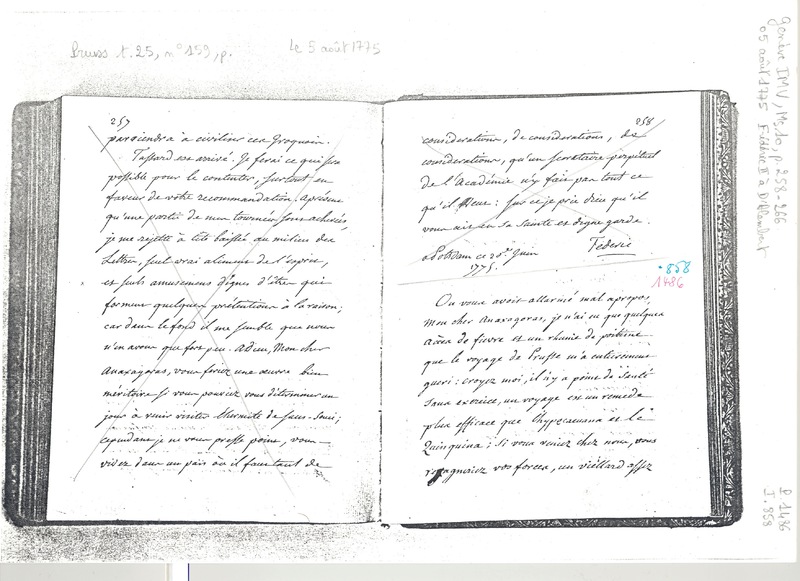 Preuss t. 25, n° 159, p.
Le 5 août 1775
257
parviendra à civiliser ces Iroquois.
Tassard est arrivé. Je ferai ce qui sera
possible pour le contenter, surtout en
faveur de votre recommandation. Apresent
qu'une partie de mes tournées sont achevées,
je me rejette à tête baissée au milieu des
Lettres, seul vrai aliment de l'esprit,
et seuls amusemens dignes d'être qui
forment quelques prétentions à la raison;
car dans le fond il me semble que nous
n'en avons que fort peu. Adieu, Mon cher
Anaxagoras, vous feriez une œuvre bien
méritoire si vous pouviez vous déterminer un
jour à venir visiter l'hermite de Sans-Souci;
cependant je ne vous presse point, vous
vivez dans un païs où il faut tant de
258
considerations, de considerations, de
considerations, qu'un secretaire perpetuel
de l'Académie n'y fait pas tout ce
qu'il veut: sur ce je prie dieu qu'il
vous ait en sa sainte et digne garde.
à Potsdam ce 20e Juin
Federic
1775.
858
1486
On vous avoit allarmé mal apropos,
Mon cher Anaxagoras, je n'ai eu que quelques
accès de fievre et un rhume de poitrine
que le voyage de Prusse m'a entierement
gueri: croyez moi, il n'y a point de Santé
sans exercice, un voyage est un remede
plus efficace que l'hypecacuana et le
Quinquina; Si vous veniez chez nous, vous
regagneriez vos forces, un viellard assez
Genève IMV, Ms. 10, p. 258-266
05 août 1775 Frédéric II à D'Alembert
P. 1486
I. 858